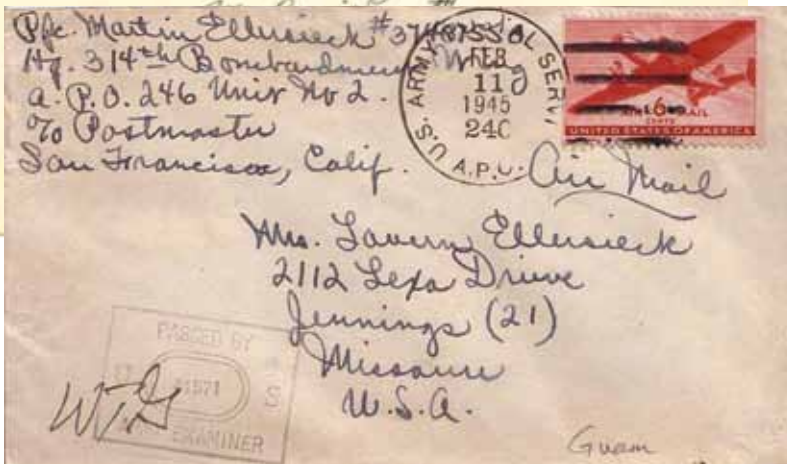 Pfc. Martin Ellersieck #
Hq. 314th Bombardment Wing
A.P.O. 246 Unit No 2.
c/o Postmaster
San Francisco, Calif.
U.S. ARMY POSTAL SERV
FEB
11
1945
A.P.O.
6
CENTS
AIR MAIL
UNITED STATES OF AMERICA
Air Mail
Mrs. Lavern Ellersieck
2112 Lexa Drive
Jennings (21)
Missouri
U.S.A.
PASSED BY
S
EXAMINER
WTG
Guam